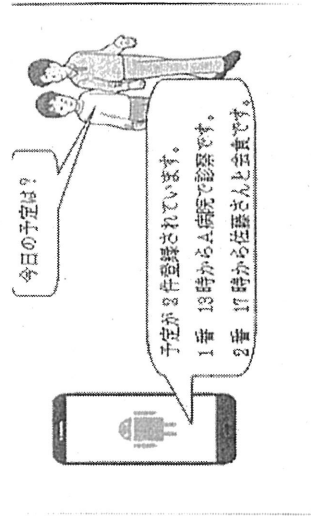 今日の予定は?
予定が2件登録されています。
1番 13時からA病院で診察です。
2番 17時から佐藤さんと会食です。